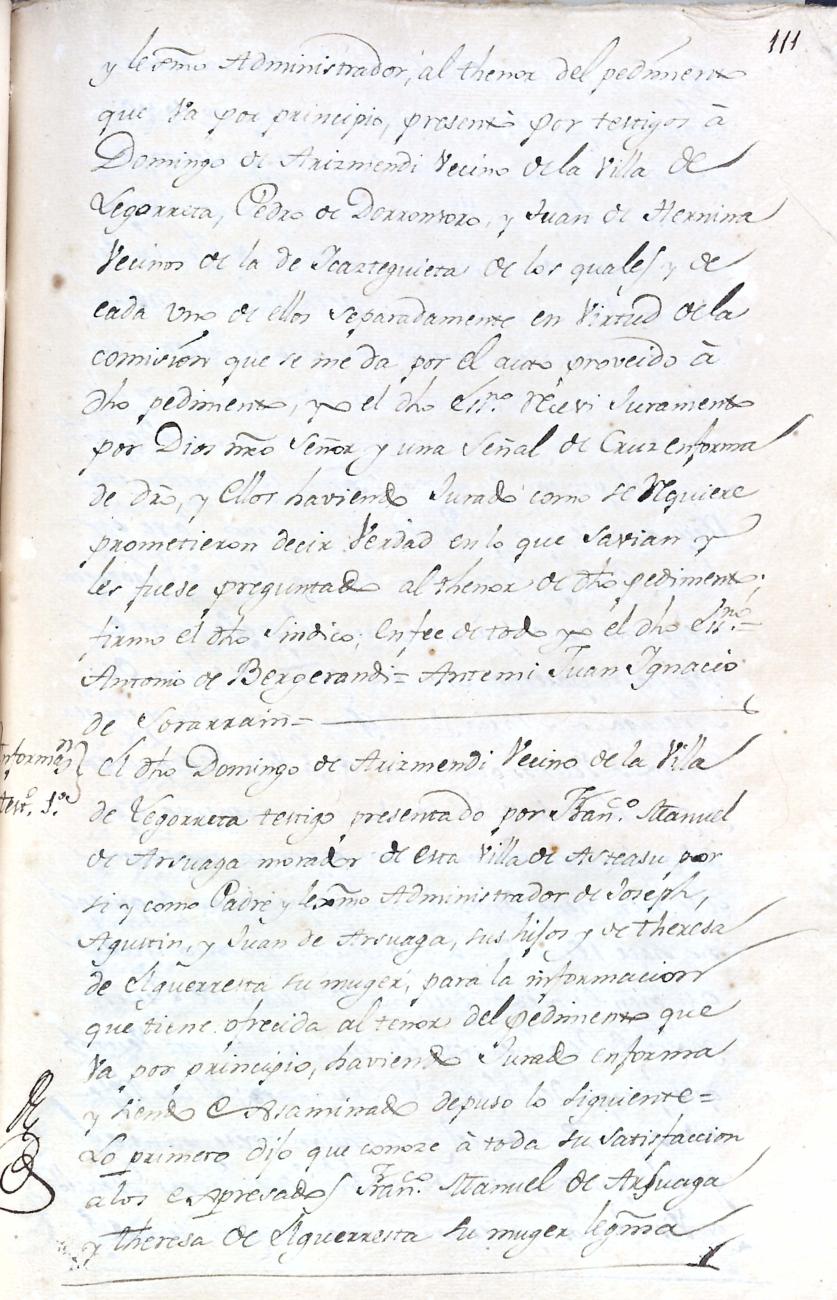 111
y lexmo Administrador, al thenor del pediment
que Va por principio, presentò por testigos à
Domingo de Arizmendi Vecino de la Villa de
Legorreta, Pedro de Dorronsoro, y Juan de Hernina
Vecinos de la de Icazteguieta de los quales y de
cada uno de ellos separadamente en Virtud de la
comision que se me da por el auto proveido à
dho pedimento, yo el dho Essno Recivi Jurament
por Dios nro Señor y una Señal de Cruz enforma
de dro, y Ellos haviendo Jurado como se Requiere
prometieron decir Verdad en lo que Savian y
les fuese preguntado al thenor de dho pediment;
firmo el dho Sindico; enfee de todo yo el dho Essno =
Antonio de Bergerandi = Antemi Juan Ignacio
de Sorarrain =
Informon
testo 1o
El dho Domingo de Arizmendi Vecino de la Villa
de Legorreta testigo presentado por Franco Manuel
de Arsuaga morador de esta Villa de Asteasu por
si y como Padre y lexmo Administrador de Joseph,
Agustin, y Juan de Arsuaga, sus hijos y de Theresa
de Elguerresta su muger, para la informacion
que tiene ofrecida al tenor del pedimento que
Va por principio, haviendo Jurado enforma
y siendo exsaminado depuso lo siguiente =
Lo primero dijo que conoze à toda su satisfaccion
alos expresados Franco Manuel de Arsuaga
y Theresa de Elguerresta su muger legma